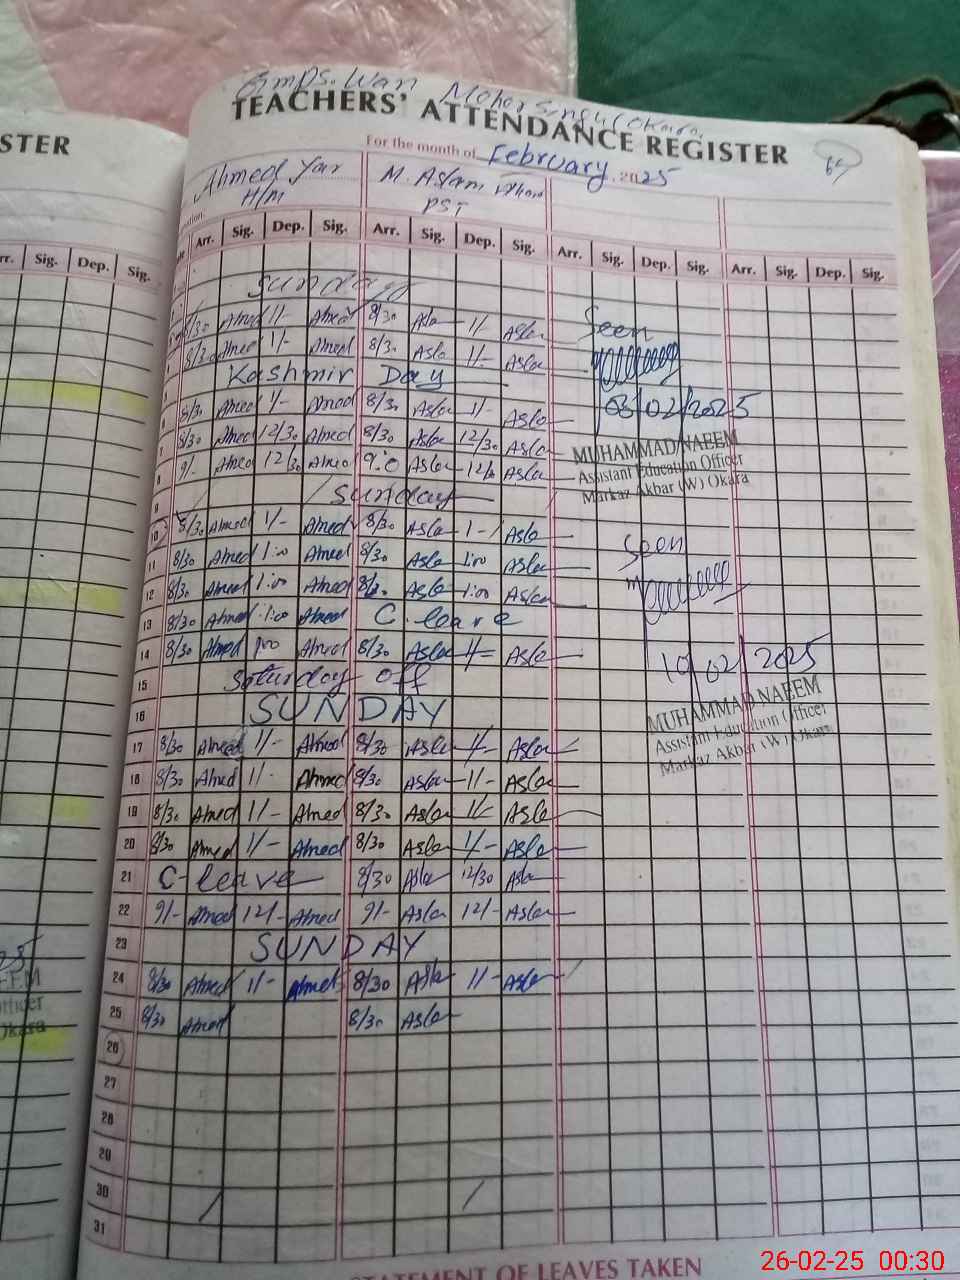 STER
GMPS. Wan Mohar Singh (Okara)
TEACHERS' ATTENDANCE REGISTER
For the month of February 2025
Ahmed Yar M. Aslam
H/M PST
rr. Sig. Dep. Sig.
Arr. Sig. Dep. Sig. Arr. Sig. Dep. Sig. Arr. Sig. Dep. Sig. Arr. Sig. Dep. Sig.
Sunday
8/30 Ahmed 1/- Ahmed 8/30 Asla 1/- Asla
Seen
8/30 Ahmed 1/- Ahmed 8/30 Asla 1/- Asla
Kashmir Day
8/30 Ahmed 1/- Ahmed 8/30 Asla 1/- Asla
03/02/2025
7 8/30 Ahmed 12/30 Ahmed 8/30 Asla 12/30 Asla
MUHAMMAD NAEEM
Assistant Education Officer
Markaz Akbar (W) Okara
8 9/- Ahmed 12/30 Ahmed 9:0 Asla 12/30 Asla
9 Sunday
10 8/30 Ahmed 1/- Ahmed 8/30 Asla 1-/ Asla
Seen
11 8/30 Ahmed 1:00 Ahmed 8/30 Asla 1:00 Asla
12 8/30 Ahmed 1:00 Ahmed 8/30 Asla 1:00 Asla
13 8/30 Ahmed 1:00 Ahmed C. leave
14 8/30 Ahmed 1:00 Ahmed 8/30 Asla 1/- Asla
10/02/2025
MUHAMMAD NAEEM
Assistant Education Officer
Markaz Akbar (W) Okara
15 Saturday off
16 SUNDAY
17 8/30 Ahmed 1/- Ahmed 8/30 Asla 1/- Asla
18 8/30 Ahmed 1/- Ahmed 8/30 Asla 1/- Asla
19 8/30 Ahmed 1/- Ahmed 8/30 Asla 1/- Asla
20 8/30 Ahmed 1/- Ahmed 8/30 Asla 1/- Asla
21 C-leave 8/30 Asla 12/30 Asla
22 9/- Ahmed 12/- Ahmed 9/- Asla 12/- Asla
23 SUNDAY
24 8/30 Ahmed 1/- Ahmed 8/30 Asla 1/- Asla
25 8/30 Ahmed 8/30 Asla
26
27
28
29
30
31
STATEMENT OF LEAVES TAKEN
26-02-25 00:30